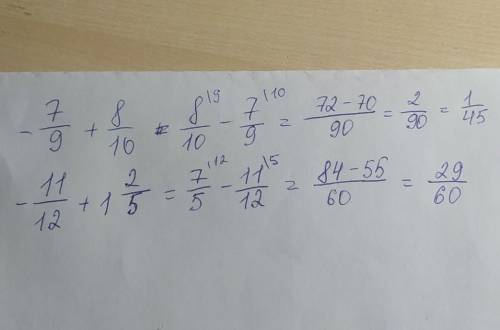 -7/9 + 8/10 = 8\9/10 - 7\10/9 = 72-70/90 = 2/90 = 1/45
-11/12 + 1 2/5 = 7\12/5 - 11\5/12 = 84-55/60 = 29/60